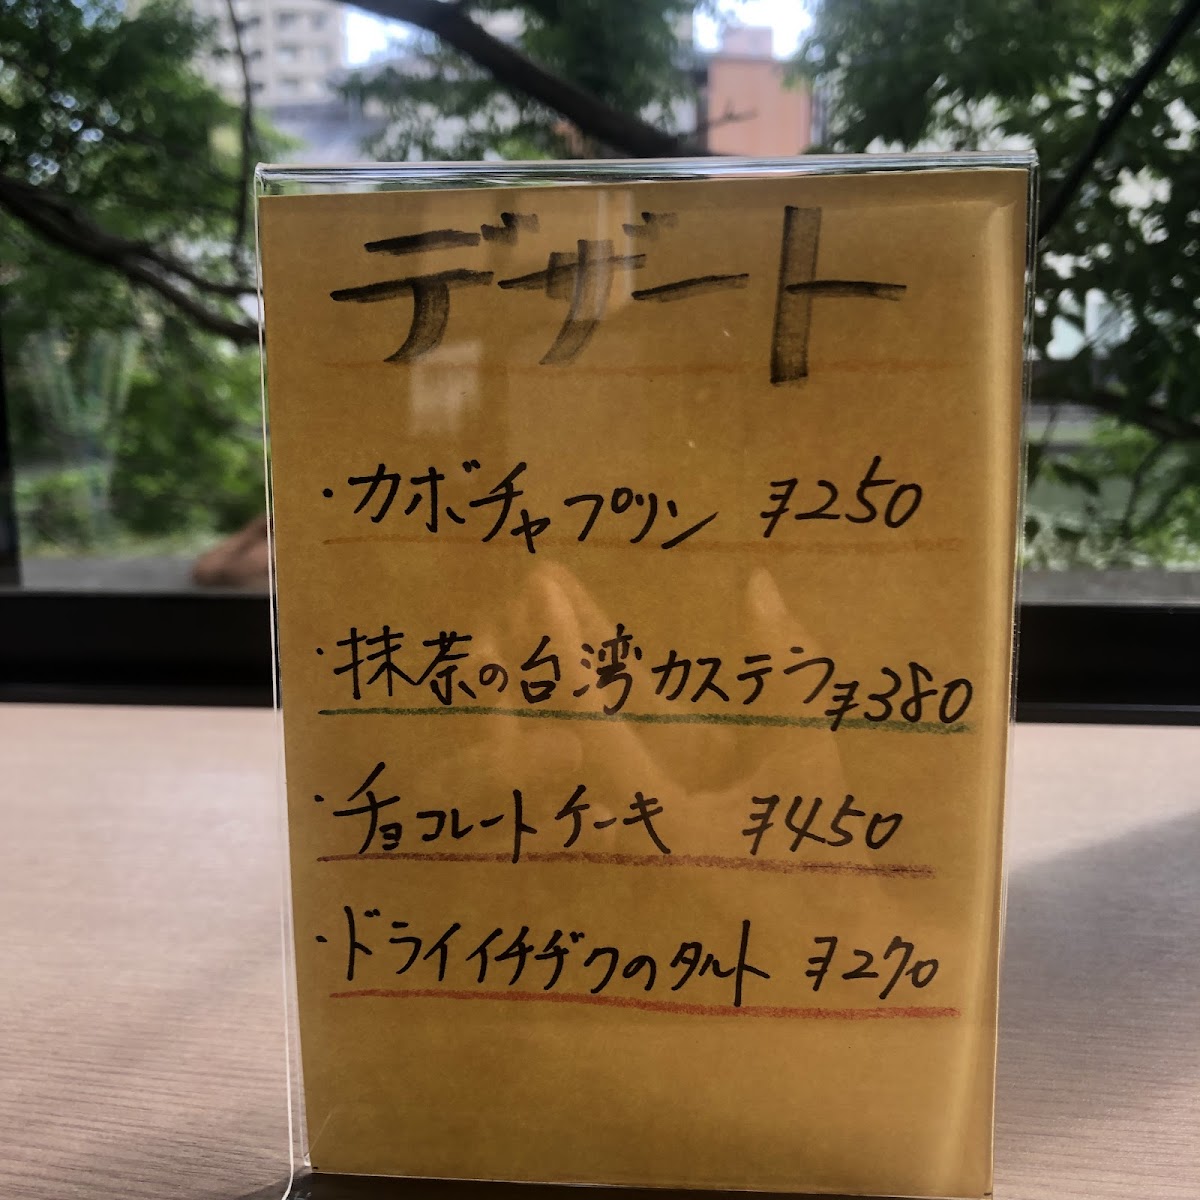 デザート
・カボチャプリン ¥250
・抹茶の台湾カステラ ¥380
・チョコレートケーキ ¥450
・ドライイチヂクのタルト ¥270